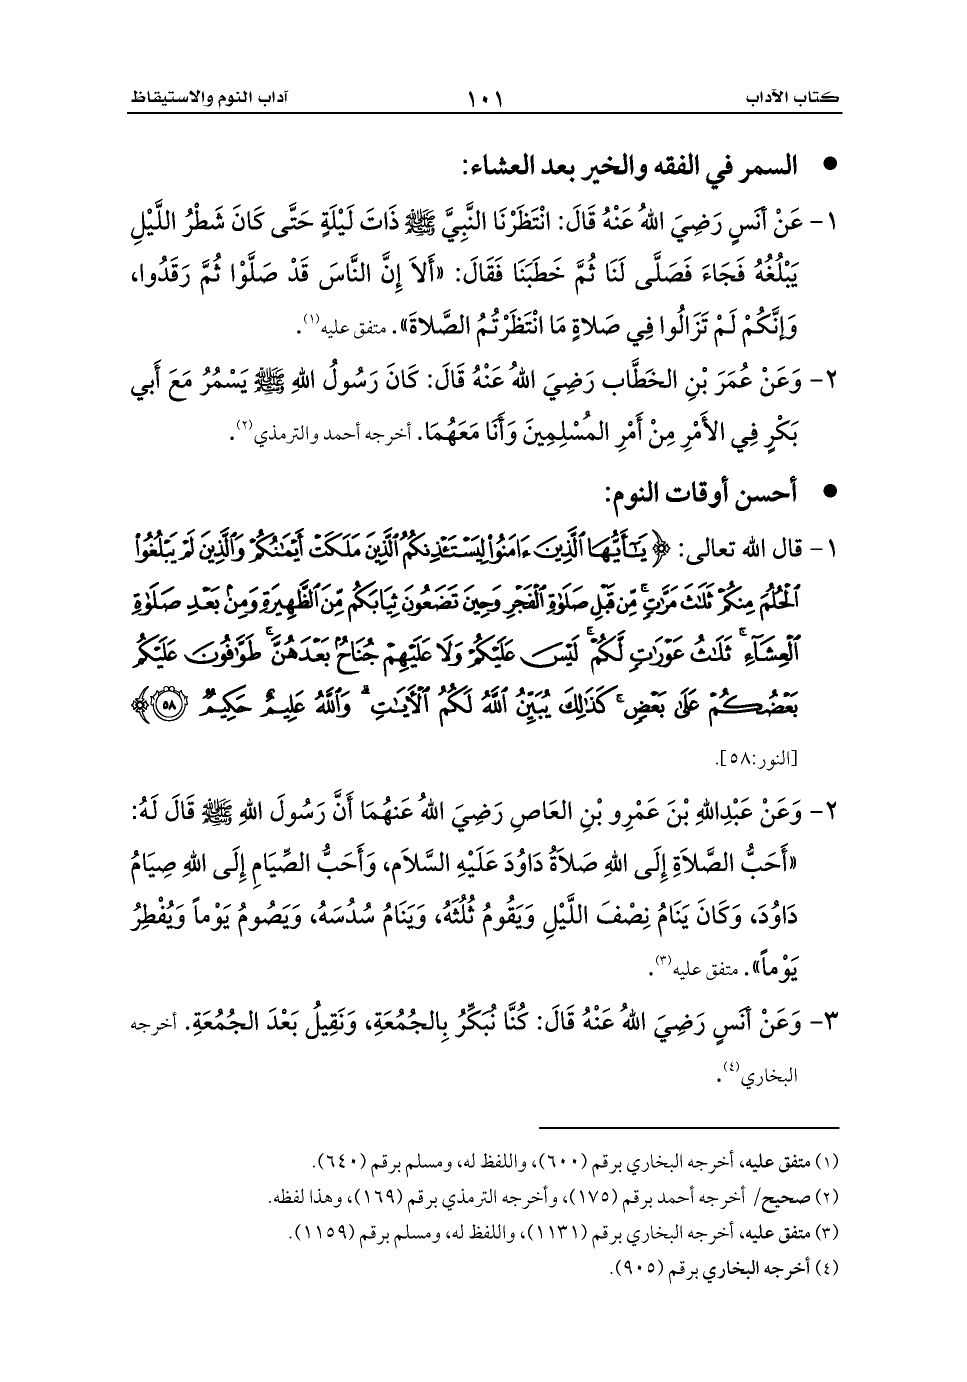 كتاب الآداب ١٠١ آداب النوم والاستيقاظ
● السمر في الفقه والخير بعد العشاء:
١- عَنْ أَنَسٍ رَضِيَ اللهُ عَنْهُ قَالَ: انْتَظَرْنَا النَّبِيَّ ﷺ ذَاتَ لَيْلَةٍ حَتَّى كَانَ شَطْرُ اللَّيْلِ
يَبْلُغُهُ فَجَاءَ فَصَلَّى لَنَا ثُمَّ خَطَبَنَا فَقَالَ: «أَلاَ إِنَّ النَّاسَ قَدْ صَلَّوْا ثُمَّ رَقَدُوا،
وَإِنَّكُمْ لَمْ تَزَالُوا فِي صَلاةٍ مَا انْتَظَرْتُمُ الصَّلاةَ». متفق عليه(١).
٢- وَعَنْ عُمَرَ بْنِ الخَطَّاب رَضِيَ اللهُ عَنْهُ قَالَ: كَانَ رَسُولُ اللهِ ﷺ يَسْمُرُ مَعَ أَبي
بَكْرٍ فِي الأَمْرِ مِنْ أَمْرِ المُسْلِمِينَ وَأَنَا مَعَهُمَا. أخرجه أحمد والترمذي(٢).
● أحسن أوقات النوم:
١- قال الله تعالى: ﴿يَٰٓأَيُّهَا ٱلَّذِينَ ءَامَنُوا۟ لِيَسْتَـْٔذِنكُمُ ٱلَّذِينَ مَلَكَتْ أَيْمَٰنُكُمْ وَٱلَّذِينَ لَمْ يَبْلُغُوا۟
ٱلْحُلُمَ مِنكُمْ ثَلَٰثَ مَرَّٰتٍۢ ۚ مِّن قَبْلِ صَلَوٰةِ ٱلْفَجْرِ وَحِينَ تَضَعُونَ ثِيَابَكُم مِّنَ ٱلظَّهِيرَةِ وَمِنۢ بَعْدِ صَلَوٰةِ
ٱلْعِشَآءِ ۚ ثَلَٰثُ عَوْرَٰتٍۢ لَّكُمْ ۚ لَيْسَ عَلَيْكُمْ وَلَا عَلَيْهِمْ جُنَاحٌۢ بَعْدَهُنَّ ۚ طَوَّٰفُونَ عَلَيْكُم
بَعْضُكُمْ عَلَىٰ بَعْضٍۢ ۚ كَذَٰلِكَ يُبَيِّنُ ٱللَّهُ لَكُمُ ٱلْءَايَٰتِ ۗ وَٱللَّهُ عَلِيمٌ حَكِيمٌۭ ٥٨﴾
[النور:٥٨].
٢- وَعَنْ عَبْدِاللهِ بْنَ عَمْرِو بْنِ العَاصِ رَضِيَ اللهُ عَنهُمَا أَنَّ رَسُولَ اللهِ ﷺ قَالَ لَهُ:
«أَحَبُّ الصَّلاَةِ إِلَى اللهِ صَلاَةُ دَاوُدَ عَلَيْهِ السَّلاَم، وَأَحَبُّ الصِّيَامِ إِلَى اللهِ صِيَامُ
دَاوُدَ، وَكَانَ يَنَامُ نِصْفَ اللَّيْلِ وَيَقُومُ ثُلُثَهُ، وَيَنَامُ سُدُسَهُ، وَيَصُومُ يَوْماً وَيُفْطِرُ
يَوْماً». متفق عليه(٣).
٣- وَعَنْ أَنَس رَضِيَ اللهُ عَنْهُ قَالَ: كُنَّا نُبَكِّرُ بِالجُمُعَةِ، وَنَقِيلُ بَعْدَ الجُمُعَةِ. أخرجه
البخاري(٤).
(١) متفق عليه، أخرجه البخاري برقم (٦٠٠)، واللفظ له، ومسلم برقم (٦٤٠).
(٢) صحيح/ أخرجه أحمد برقم (١٧٥)، وأخرجه الترمذي برقم (١٦٩)، وهذا لفظه.
(٣) متفق عليه، أخرجه البخاري برقم (١١٣١)، واللفظ له، ومسلم برقم (١١٥٩).
(٤) أخرجه البخاري برقم (٩٠٥).